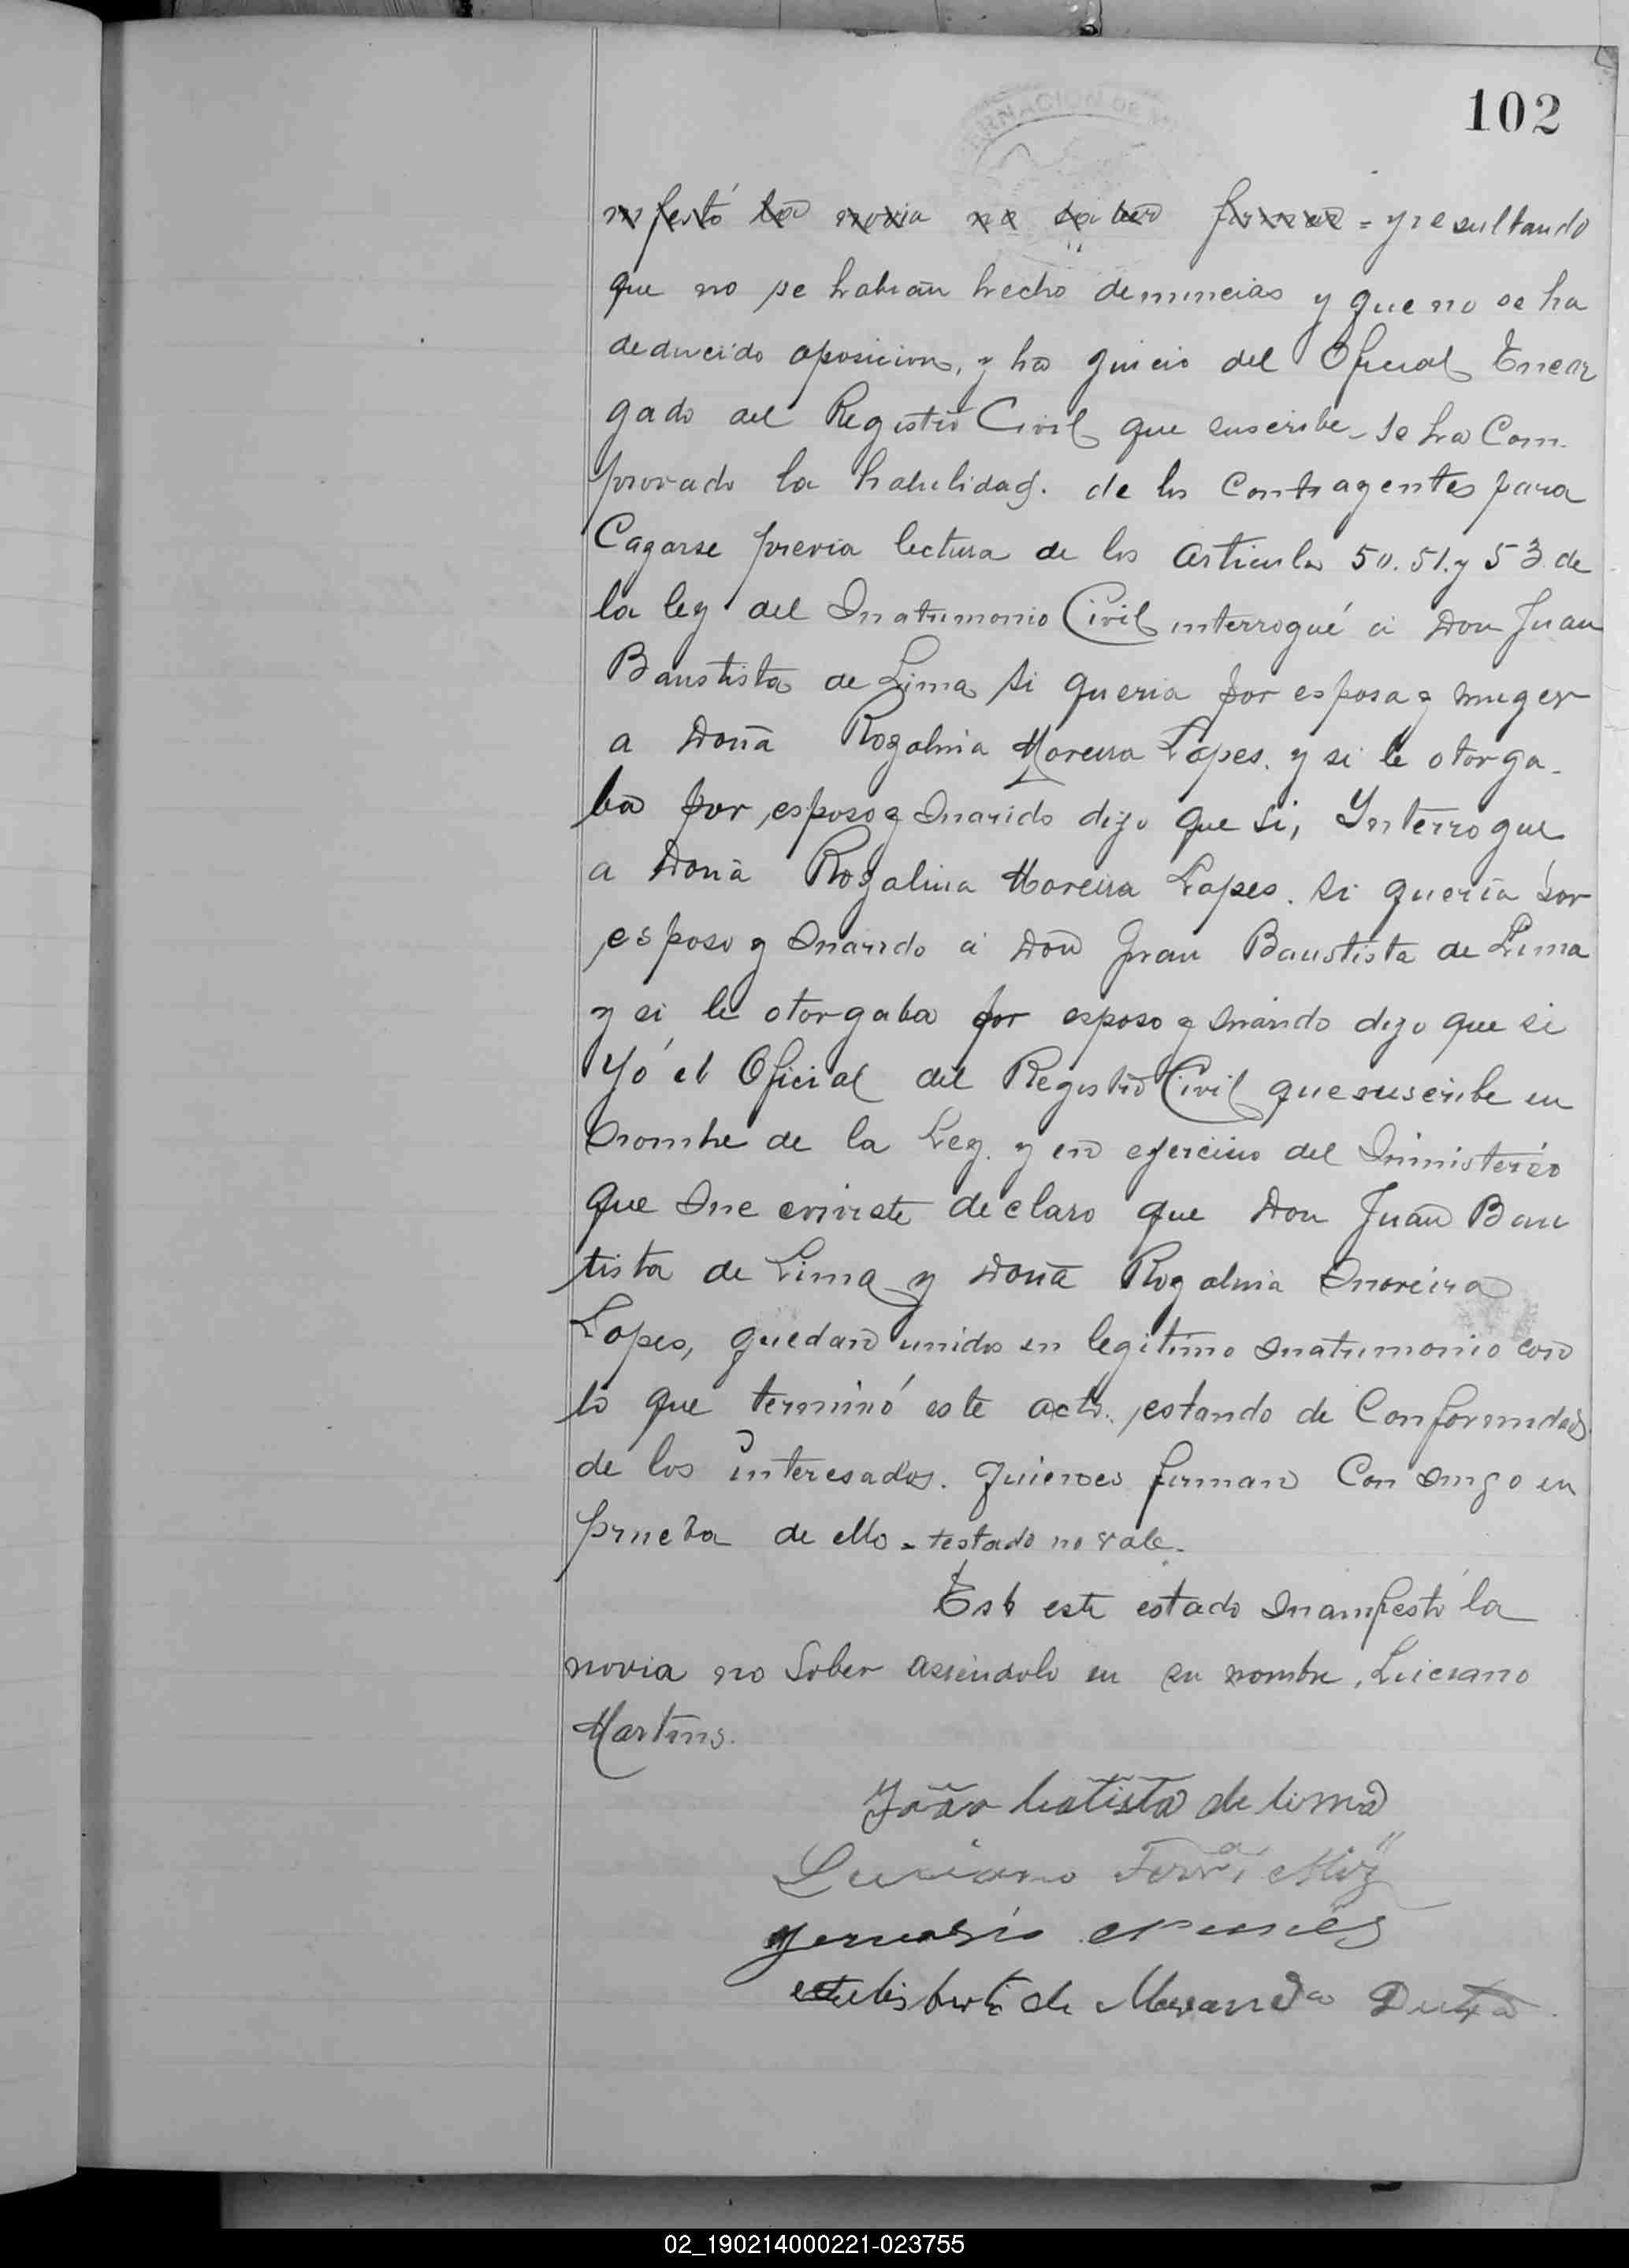 102
nifestó la novia no saber firmar = y resultando
que no se habian hecho denuncias y que no se ha
deducido oposicion, y ha guicio del Oficial Encar
gado del Registro Civil que suscribe se ha Com-
provado la habilidad. de los Contragentes para
Cagarse previa lectura de los Articulos 50. 51. y 53 de
la ley del Matrimonio Civil interrogué á Don Juan
Baustista de Lima si queria por esposa y muger
a Doña Rogalina Moreira Lopes. y si le otorga-
ba por esposo y Marido dijo que si, Ynterrogue
a Doña Rogalina Moreira Lopes. si queria por
esposo y Marido á Don Juan Baustista de Lima
y si le otorgaba por esposo y Marido dijo que si
Yó el Oficial del Registro Civil que suscribe en
Nombre de la Ley. y en ejercicio del Ministerio
que me enviste declaro que Don Juan Bau
tista de Lima y Doña Rogalina Moreira
Lopes, quedan unidos en legitimo Matrimonio con
lo que terminó este acto. estando de Conformidad
de los interesados. quienes firman Con migo en
prueba de ello - testado no vale-
este estado Manifestó la
novia no Saber asiendolo en su nombre, Luciano
Martins.
João batista de lima
Luciano Ferra Miz
Nunes
de Miranda Dutra
02_190214000221-023755